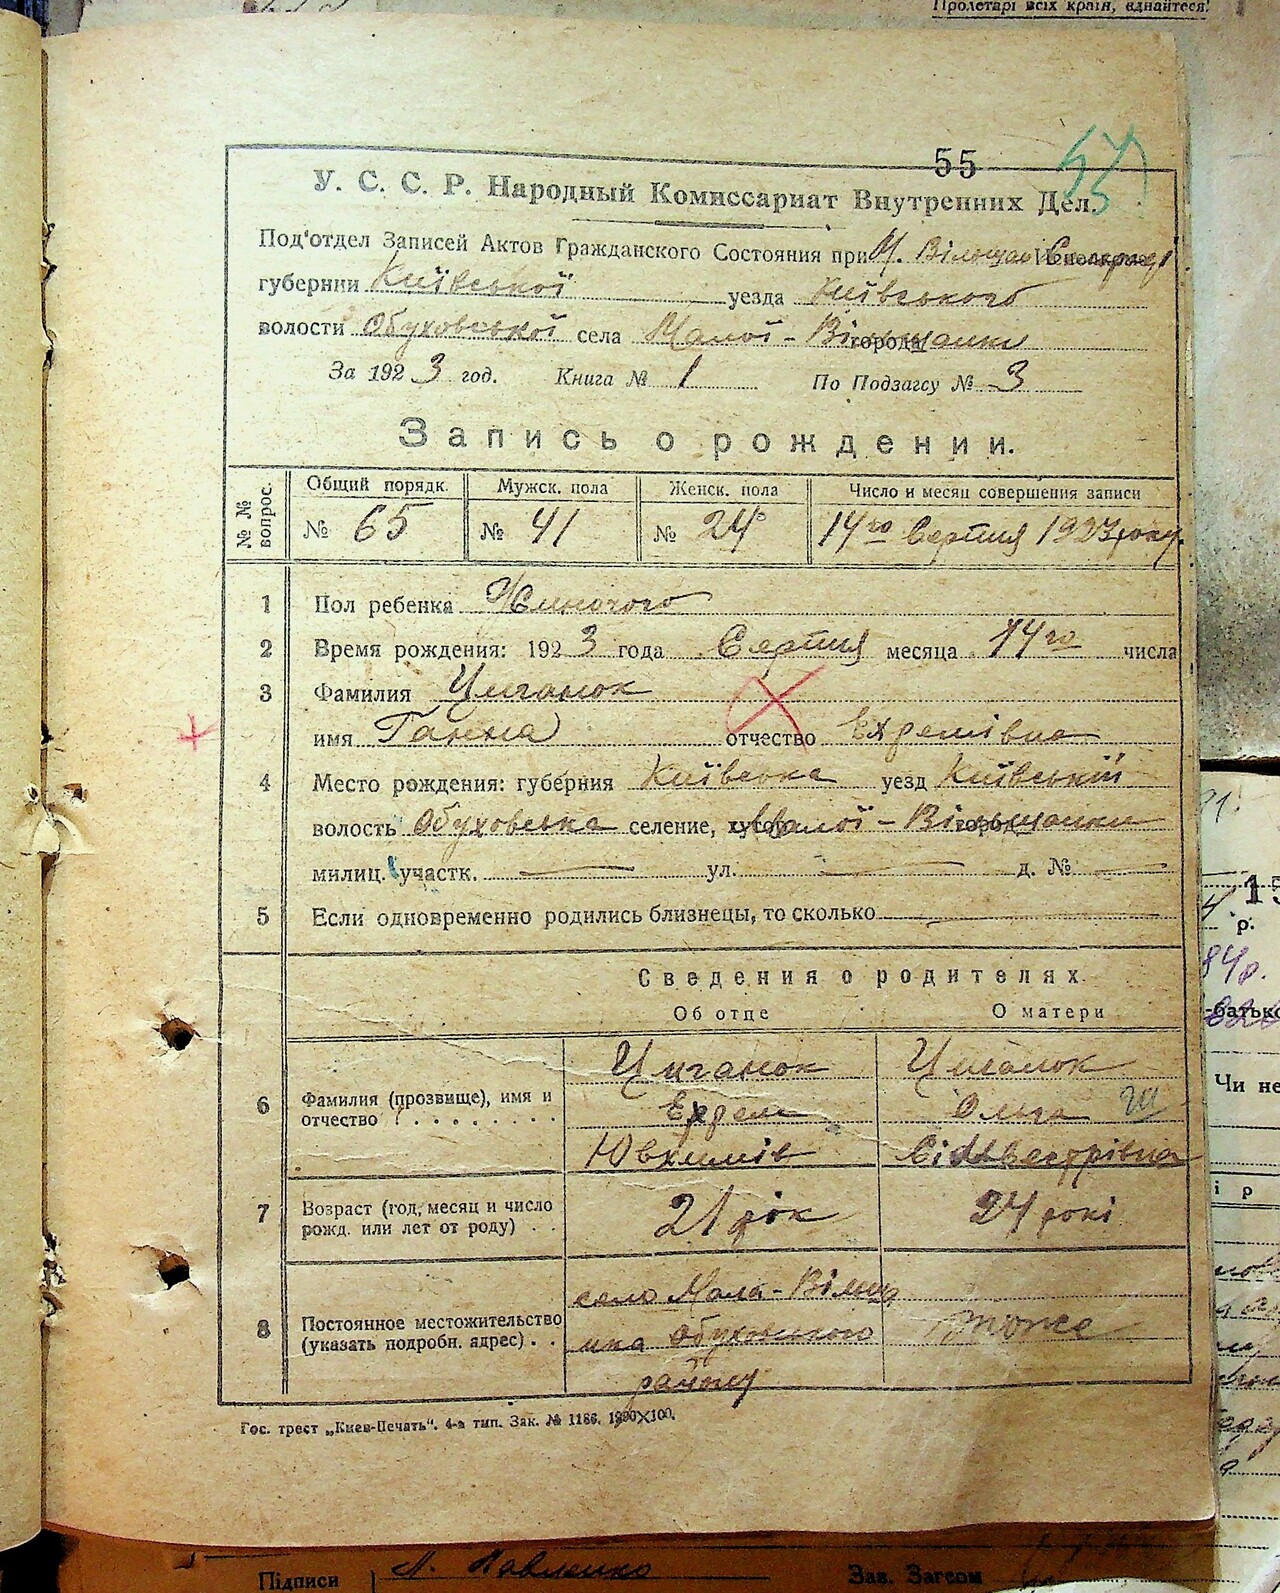 Пролетарі всіх країн, єднайтеся!
55
У. С. С. Р. Народный Комиссариат Внутренних Дел.
Под'отдел Записей Актов Гражданского Состояния при М. Вільшан
губернии Київської уезда Київського
волости Обуховської села Малої - Вільшанки города
За 1923 год. Книга № 1 По Подзагсу № 3
Запись о рождении.
№ № вопрос. Общий порядк. Мужск. пола Женск. пола Число и месяц совершения записи
№ 65 № 41 № 24 14го Серпня 1923 року.
1 Пол ребенка Жиночого
2 Время рождения: 1923 года Серпня месяца 14го числа
3 Фамилия Циганок
имя Ганна отчество Ехремівна
4 Место рождения: губерния Київська уезд Київський
волость Обуховська селение, Малої - Вільшанки
милиц. участк. — ул. — д. № —
5 Если одновременно родились близнецы, то сколько —
Сведения о родителях
Об отце О матери
Циганок Циганок
6 Фамилия (прозвище), имя и отчество Ехрем Ольга
Ювхимів Сільвестрівна
7 Возраст (год, месяц и число рожд. или лет от роду) 21 рік 24 рокі
село Мала - Вільша
8 Постоянное местожительство (указать подробн. адрес) нка Обуховського тоже
району
Гос. трест „Киев-Печать". 4-я тип. Зак. № 1186. 1990×100.
Підписи Зав. Загсом
р.
-батько
Чи не